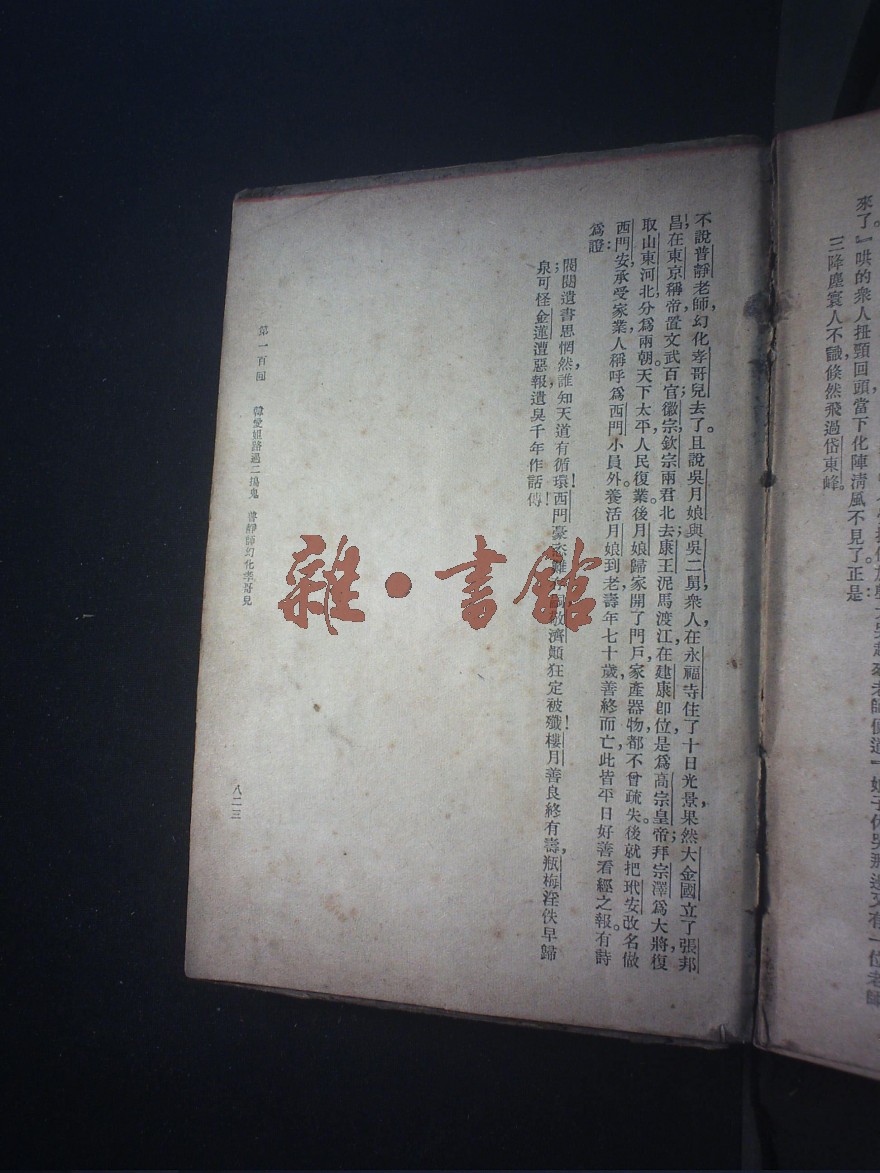 來了。』哄的衆人扭頸回頭當下化陣清風不見了正是：
三降塵寰人不識倏然飛過岱東峰。
不說普靜老師幻化孝哥兒去了。且說吳月娘與吳二舅衆人在永福寺住了十日光景果然大金國立了張邦
昌，在東京稱帝置文武百官；徽宗欽宗兩君北去；康王泥馬渡江，在建康卽位，是爲高宗皇帝；拜宗澤爲大將，復
取山東河北，分爲兩朝，天下太平，人民復業。後月娘歸家，開了門戶，家產器物，都不曾疏失。後就把玳安改名做
西門安，承受家業，人稱呼爲西門小員外。養活月娘到老，壽年七十歲，善終而亡，此皆平日好善看經之報。有詩
爲證：
閥閱遺書思惘然，誰知天道有循環！西門豪
濟顚狂定被殲！樓月善良終有壽，瓶梅淫佚早歸
泉；可怪金蓮遭惡報，遺臭千年作話傳！
第一百回　韓愛姐路遇二搗鬼　普靜師幻化孝哥兒
八二三
雜·書館